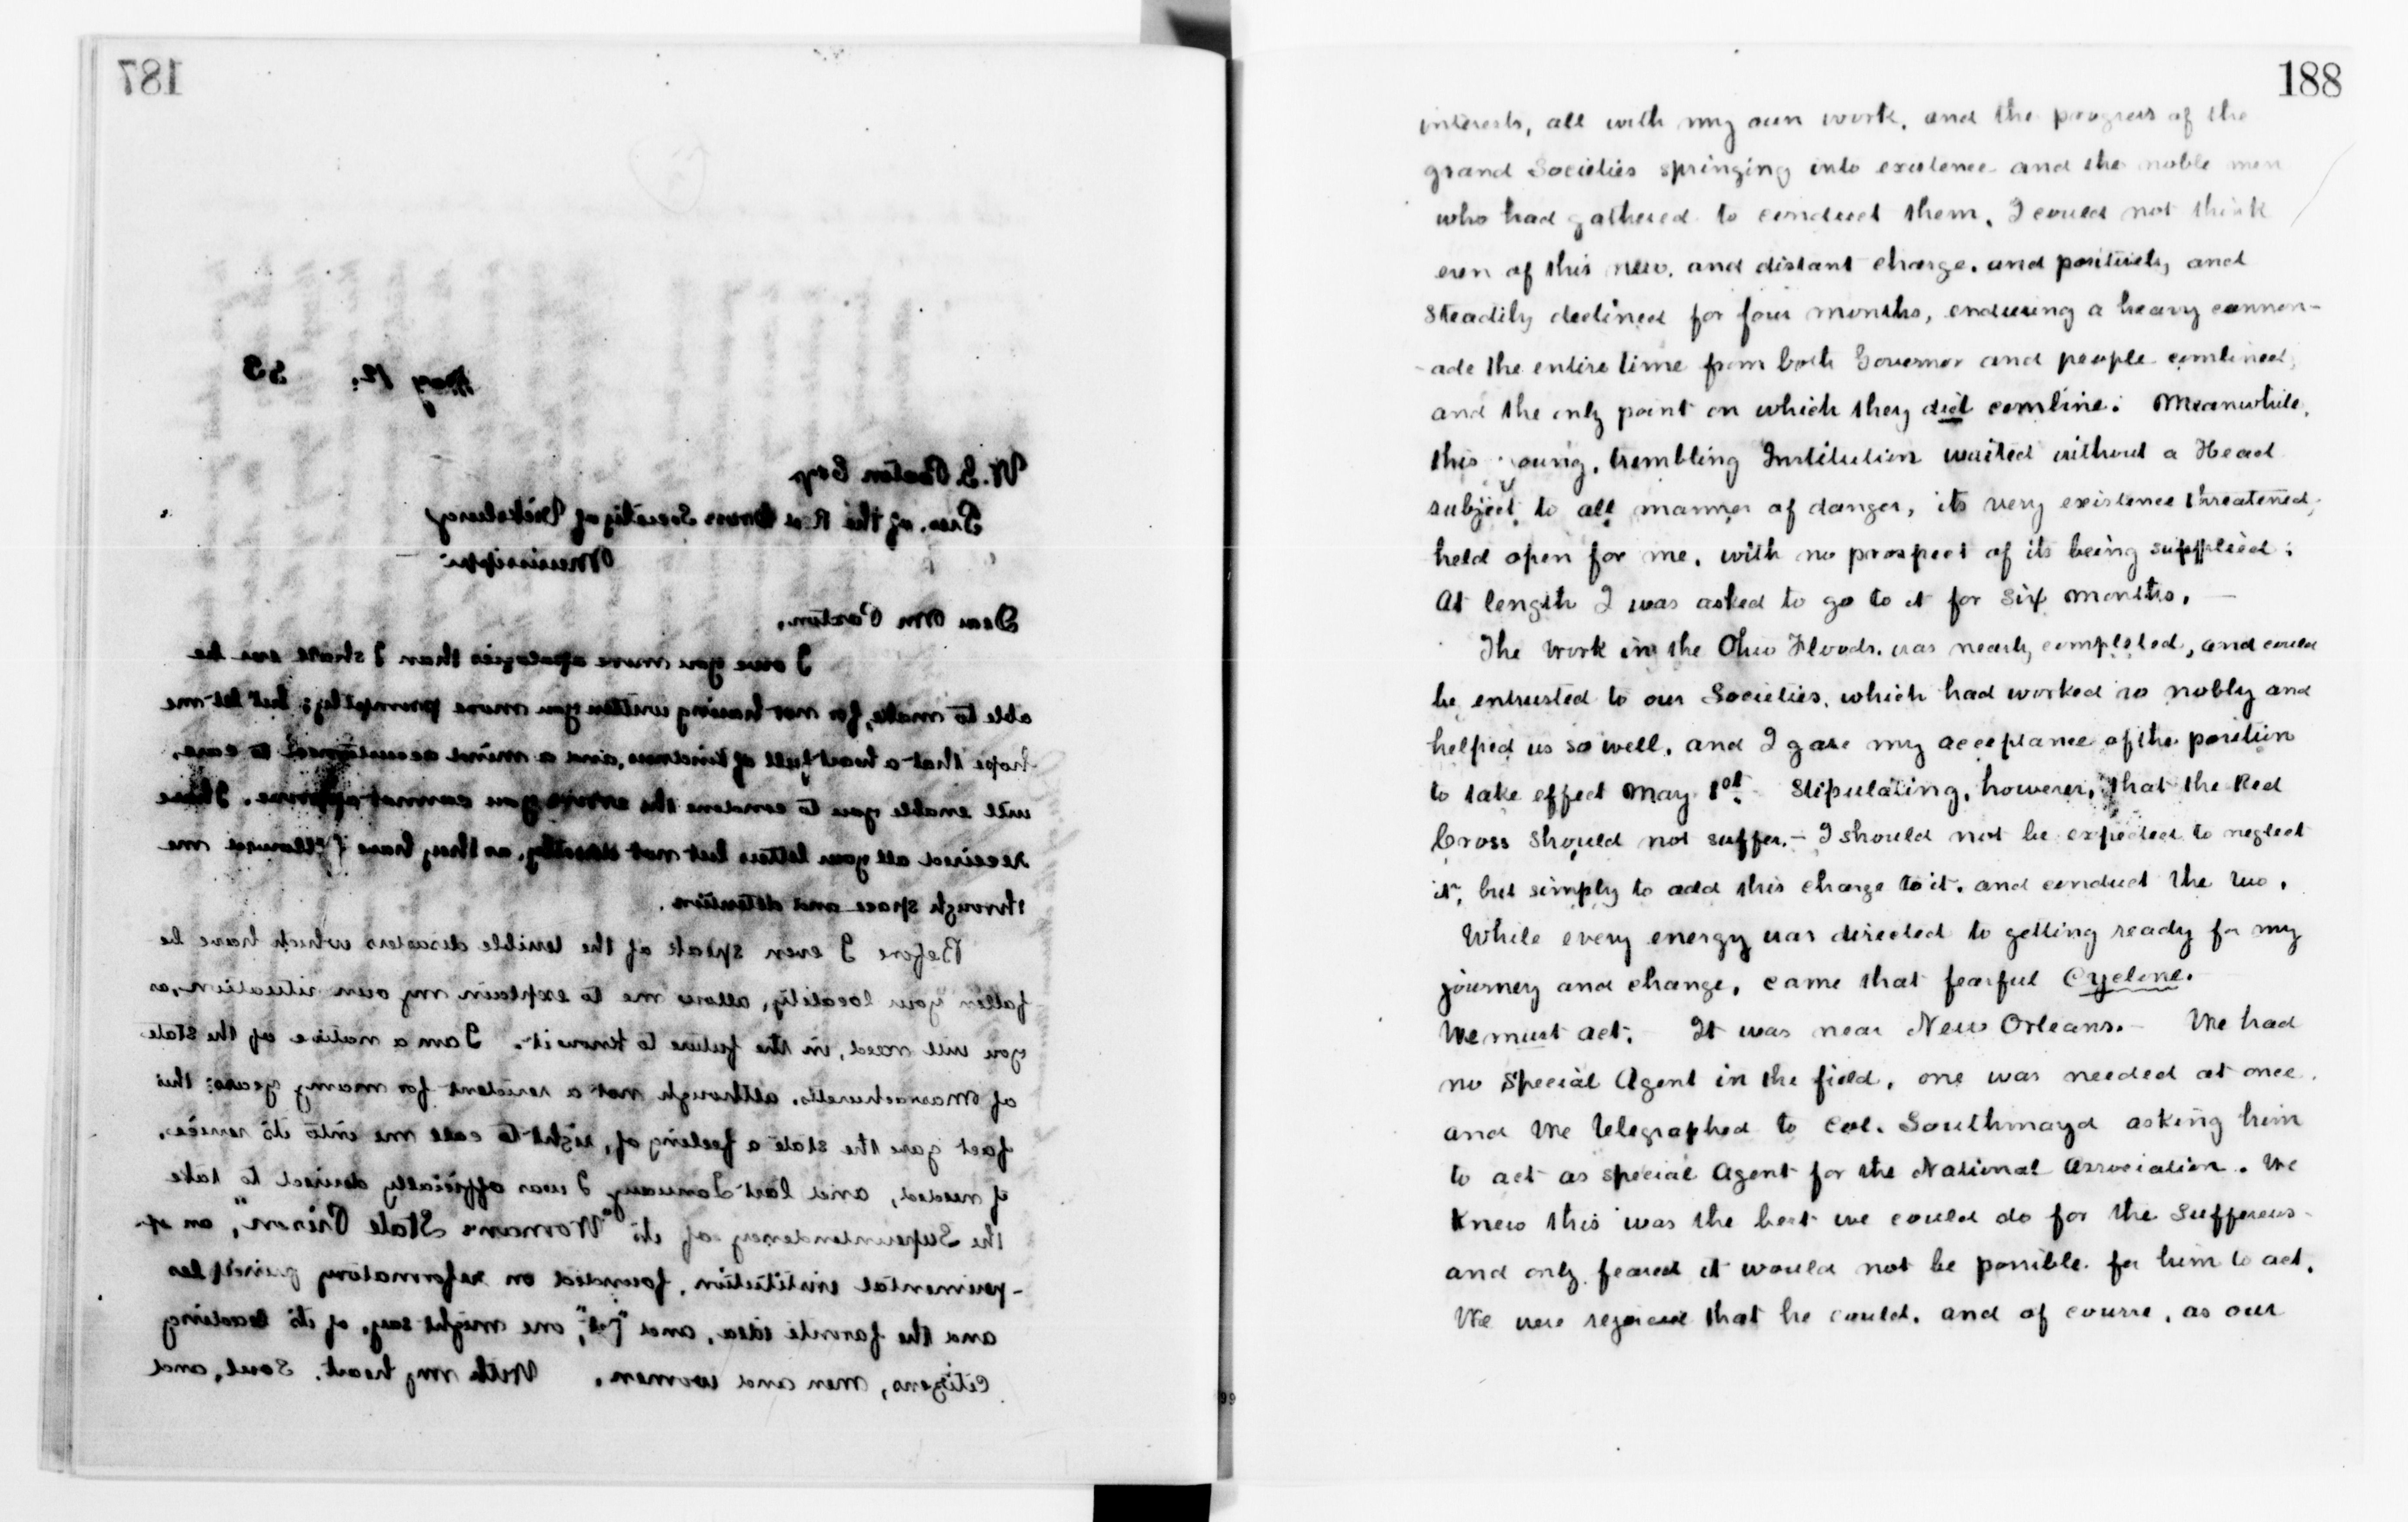 187
May 12. 83
W. G. Paxton Esq
Pres. of the Red Cross Society of Vicksburg
Mississippi
Dear Mr Paxton,
I owe you more apologies than I shall ever be
able to make, for not having written you more promptly; but let me
hope that a heart full of kindness, and a mind accustomed to care,
will enable you to condone the error you cannot approve. I have
received all your letters but not directly, as they have followed me
through space and detention.
Before I even speak of the terrible disasters which have be
fallen your locality, allow me to explain my own situation, as
you will need, in the future to know it. I am a native of the state
of Massachusetts, although not a resident for many years; this
fact gave the state a feeling of, right to call me into its service,
if needed, and last January I was officially desired to take
the Superintendency of its "Woman's State Prison", an ex-
-perimental institution, founded on reformatory principles
and the favorite idea, and "pet", one might say, of its leading
citizens, men and women. With my heart, soul, and
188
interests, all with my own work, and the progress of the
grand Societies springing into existence and the noble men
who had gathered to conduct them, I could not think
even of this new, and distant charge, and positively and
steadily declined for four months, enduring a heavy cannon-
-ade the entire time from both Governor and people combined,
and the only point on which they did combine. Meanwhile,
this young, trembling Institution waited without a Head
subject to all manner of danger, its very existence threatened,
held open for me, with no prospect of its being supplied;
At length I was asked to go to it for six months. —
The work in the Ohio Floods, was nearly completed, and could
be entrusted to our Societies, which had worked so nobly and
helped us so well, and I gave my acceptance of the position
to take effect May 1st. Stipulating, however, that the Red
Cross should not suffer. – I should not be expected to neglect
it, but simply to add this charge to it, and conduct the two.
While every energy was directed to getting ready for my
journey and change, came that fearful Cyclone.
We must act. It was near New Orleans. – We had
no Special Agent in the field, one was needed at once.
and We telegraphed to Col. Southmayd asking him
to act as special Agent for the National Association. We
knew this was the best we could do for the Sufferers –
and only feared it would not be possible for him to act.
We were rejoiced that he could, and of course, as our